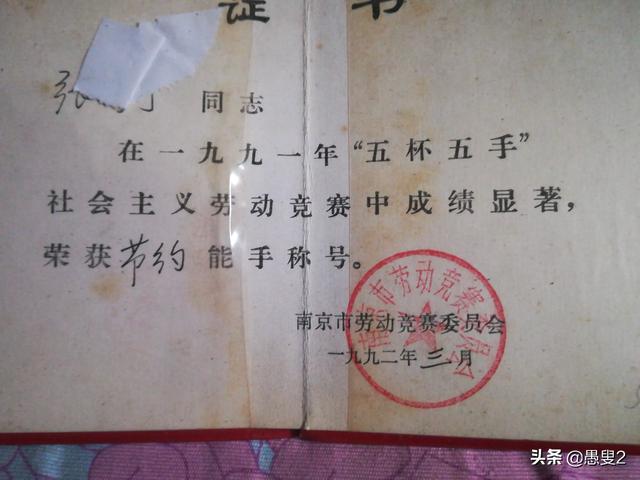 证书
张 同志
在一九九一年“五杯五手”
社会主义劳动竞赛中成绩显著，
荣获节约能手称号。
南京市劳动竞赛委员会
一九九二年三月
南京市劳动竞赛委员会
头条 @愚叟2